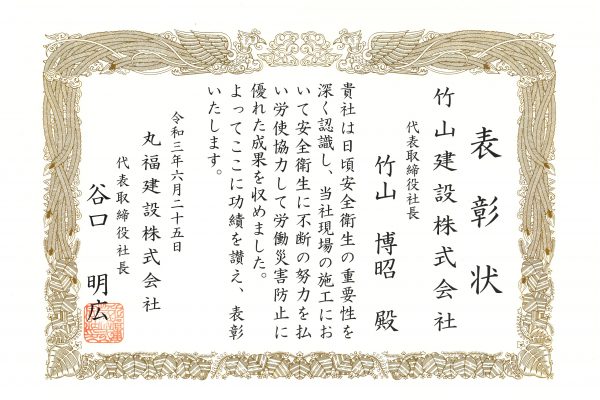 表彰状
竹山建設株式会社
代表取締役社長
竹山 博昭 殿
貴社は日頃安全衛生の重要性を
深く認識し、当社現場の施工にお
いて安全衛生に不断の努力を払
い労使協力して労働災害防止に
優れた成果を収めました。
よってここに功績を讃え、表彰
いたします。
令和三年六月二十五日
丸福建設株式会社
代表取締役社長
谷口 明広